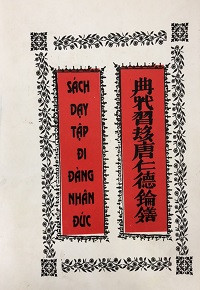 SÁCH
DẠY
TẬP
ĐI
ĐÀNG
NHÂN
ĐỨC
典習唐仁德